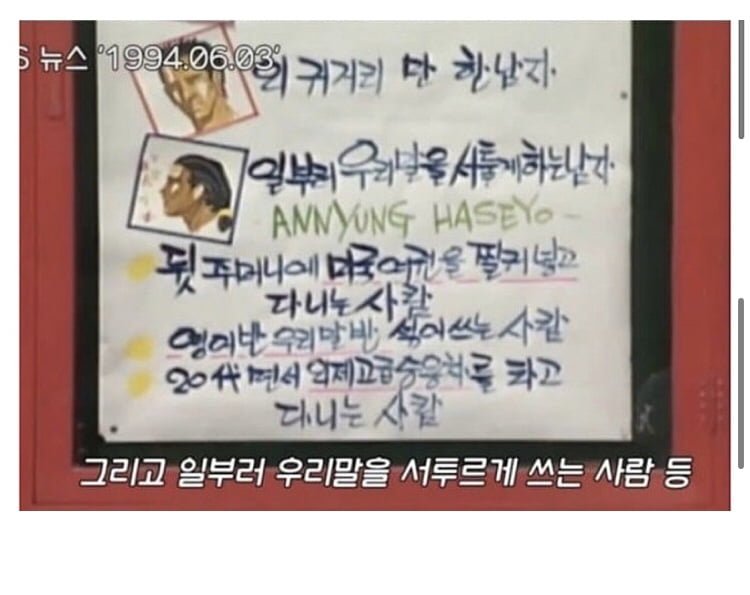 S 뉴스 '1994.06.03'
귀거리 만 한 남자.
일부러 우리말을 서툴게하는남자.
ANNYUNG HASEYO~
뒷주머니에 미국여권을 찔러 넣고
다니는 사람
영어반 우리말반 섞어쓰는 사람
20代면서 외제고급승용차를 타고
다니는 사람
그리고 일부러 우리말을 서투르게 쓰는 사람 등